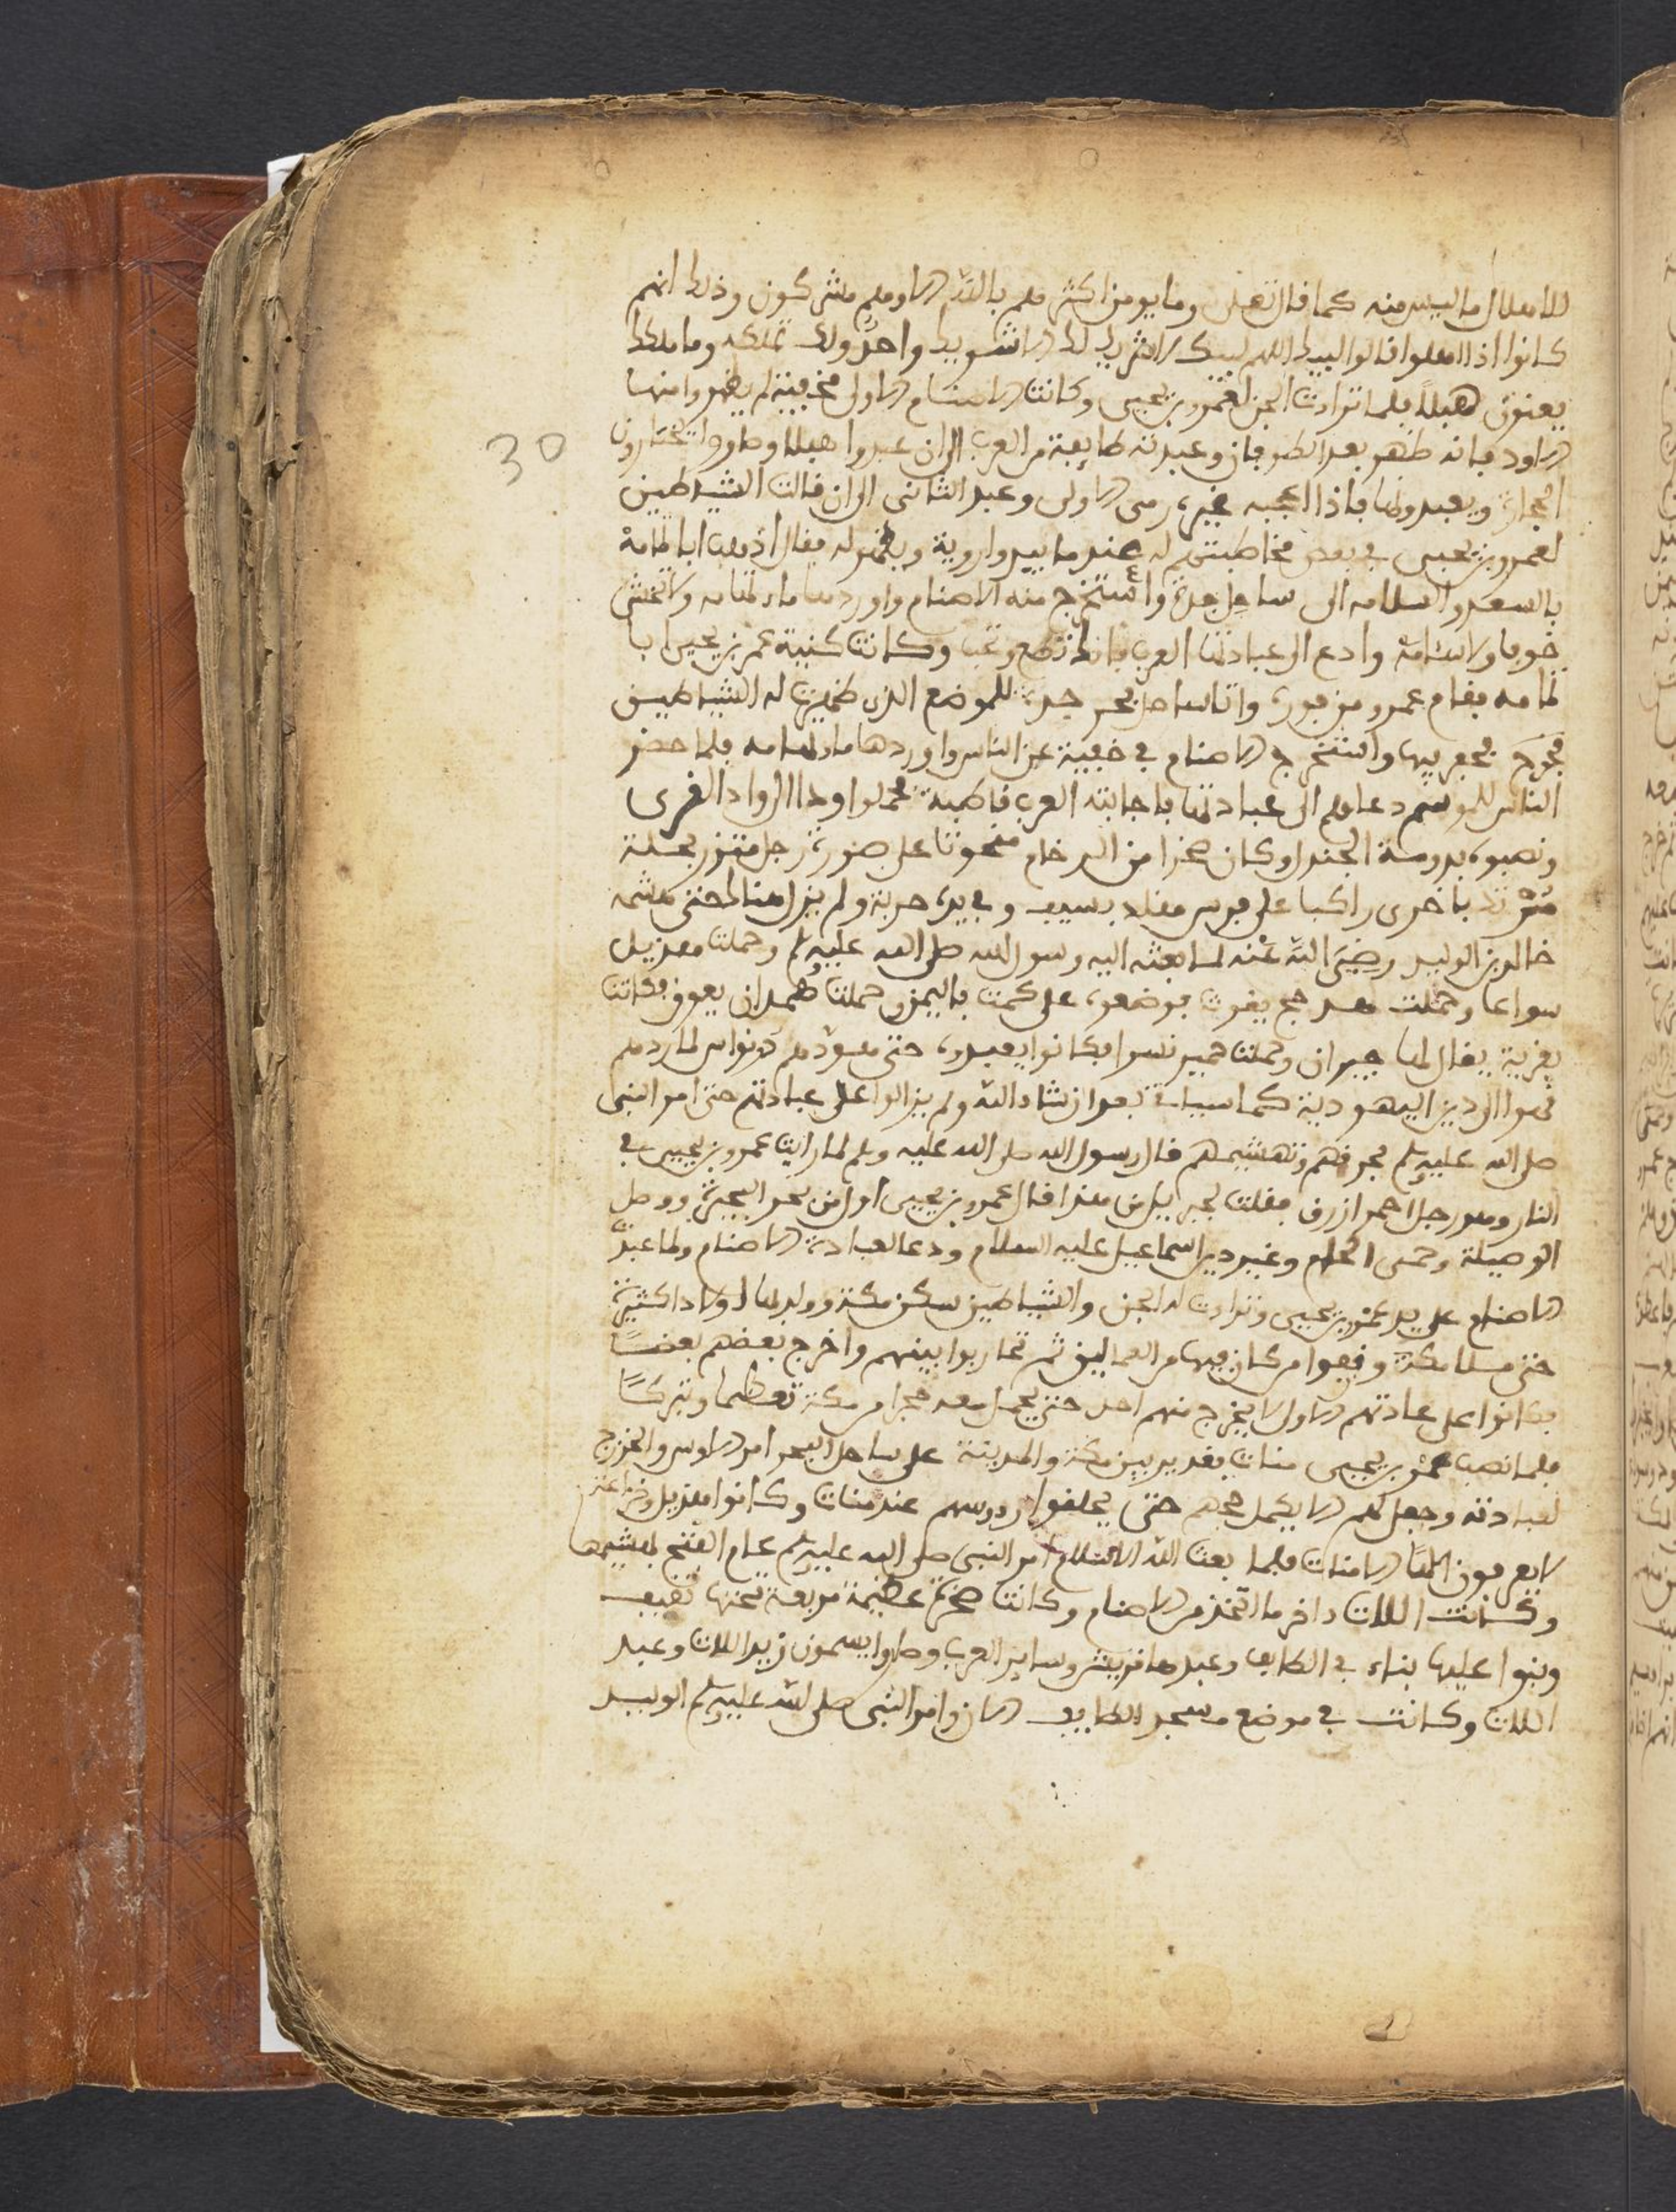 للاهلال ما ليس منه كما قال تعلى وما يومن اكثرهم بالله الا وهم مشركون وذلك انهم
كانوا اذا اهلوا قالوا لبيك اللهم لبيك لا شريك لك الا شريك واحد ولك تملكه وما ملك
يعنون هبلا فلما تراءت الجن لعمرو بن يحيى وكانت الاصنام الاولى مخفية لم يظهروا منها
الا ود فانه ظهر بعد الطوفان وعبدته طايفة من العرب الى ان عبدوا هبلا وصاروا يختارون
الحجارة ويعبدونها فاذا اعجبه غيره رمى الاولى وعبد الثانى الى ان قالت الشيطين
لعمرو بن يحيى في بعض مخاطبتهم له عند ما يبدوا روية ويظهر له فقال اذهب ابا ثمامة
بالسعد والسلامه الى ساحل جدة واستخرج منه الاصنام واوردها ماء تهامه ولا تخش
خوفا ولا سئامة وادع الى عبادتها العرب فانك تطع وتجب وكانت كنية عمر بن يحيى ابا
ثمامه فقام عمرو من فوره واتا ساحل بحر جدة للموضع الذى ظهرت له الشياطين
فخرج فحفر فيها واستخرج الاصنام في خفية عن الناس واوردها ماء تهامه فلما حضر
الناس للموسم دعاهم الى عبادتها فاجابته العرب قاطبة فحملوا ودا الى واد القرى
ونصبوه بدومة الجندل وكان صخرا من الرخام منحوتا على صورة رجل متزر بحلة
مرتد باخرى راكبا على فرس مقلد بسيف وفي يده حربة ولم يزل هناك حتى هشمه
خالد بن الوليد رضي الله عنه لما بعثه اليه رسول الله صلى الله عليه وسلم وحملت هذيل
سواعا وحملت مذحج يغوث فوضعوه على كمت باليمن وحملت همدان يعوق فكانت
بقرية يقال لها حيران وحملت حمير نسرا فكانوا يعبدوه حتى هودهم ذونواس لما ردهم
فهوا الى دين اليهودية كما سياتي بعد ان شاء الله ولم يزالوا على عبادتهم حتى امر النبى
صلى الله عليه وسلم بحرقهم وتهشيمهم قال رسول الله صلى الله عليه وسلم لما رايت عمرو بن يحيى في
النار وهو رجل احمر ازرق فقلت لجبريل من هذا قال عمرو بن يحيى اول من بحر البحيرة ووصل
الوصيلة وحمى الحام وغير دين اسماعيل عليه السلام ودعا لعبادة الاصنام ولما عبدت
الاصنام على يد عمرو بن يحيى وتراءت له الجن والشياطين سكن مكة وولد لها اولادا كثيرة
حتى ملا مكة ونفوا من كان فيها من العماليق ثم تحاربوا بينهم واخرج بعضهم بعضا
فكانوا على عادتهم الاول لا يخرج منهم احد حتى يحمل معه حجرا من مكة تعظيما وتبركا
فلما نصب عمرو بن يحيى منات بقديد بين مكة والمدينة على ساحل البحر امر الاوس والخزرج
لعبادته وجعل لهم الا يكمل حجهم حتى يحلقوا رءوسهم عند منات وكانوا هذيل وخزاعة
لا يعرفون الها الا منات فلما بعث الله الاسلام امر النبى صلى الله عليه وسلم عام الفتح بهشيمها
وكانت اللات داخر ما اتخذ من الاصنام وكانت صخرة عظيمة مربعة تحتها ثقيف
وبنوا عليها بناء في الطايف وعبدها قريش وساير العرب وصاروا يسمون زيد اللات وعبد
اللات وكانت في موضع مسجد الطايف الان وامر النبى صلى الله عليه وسلم الوليد
30